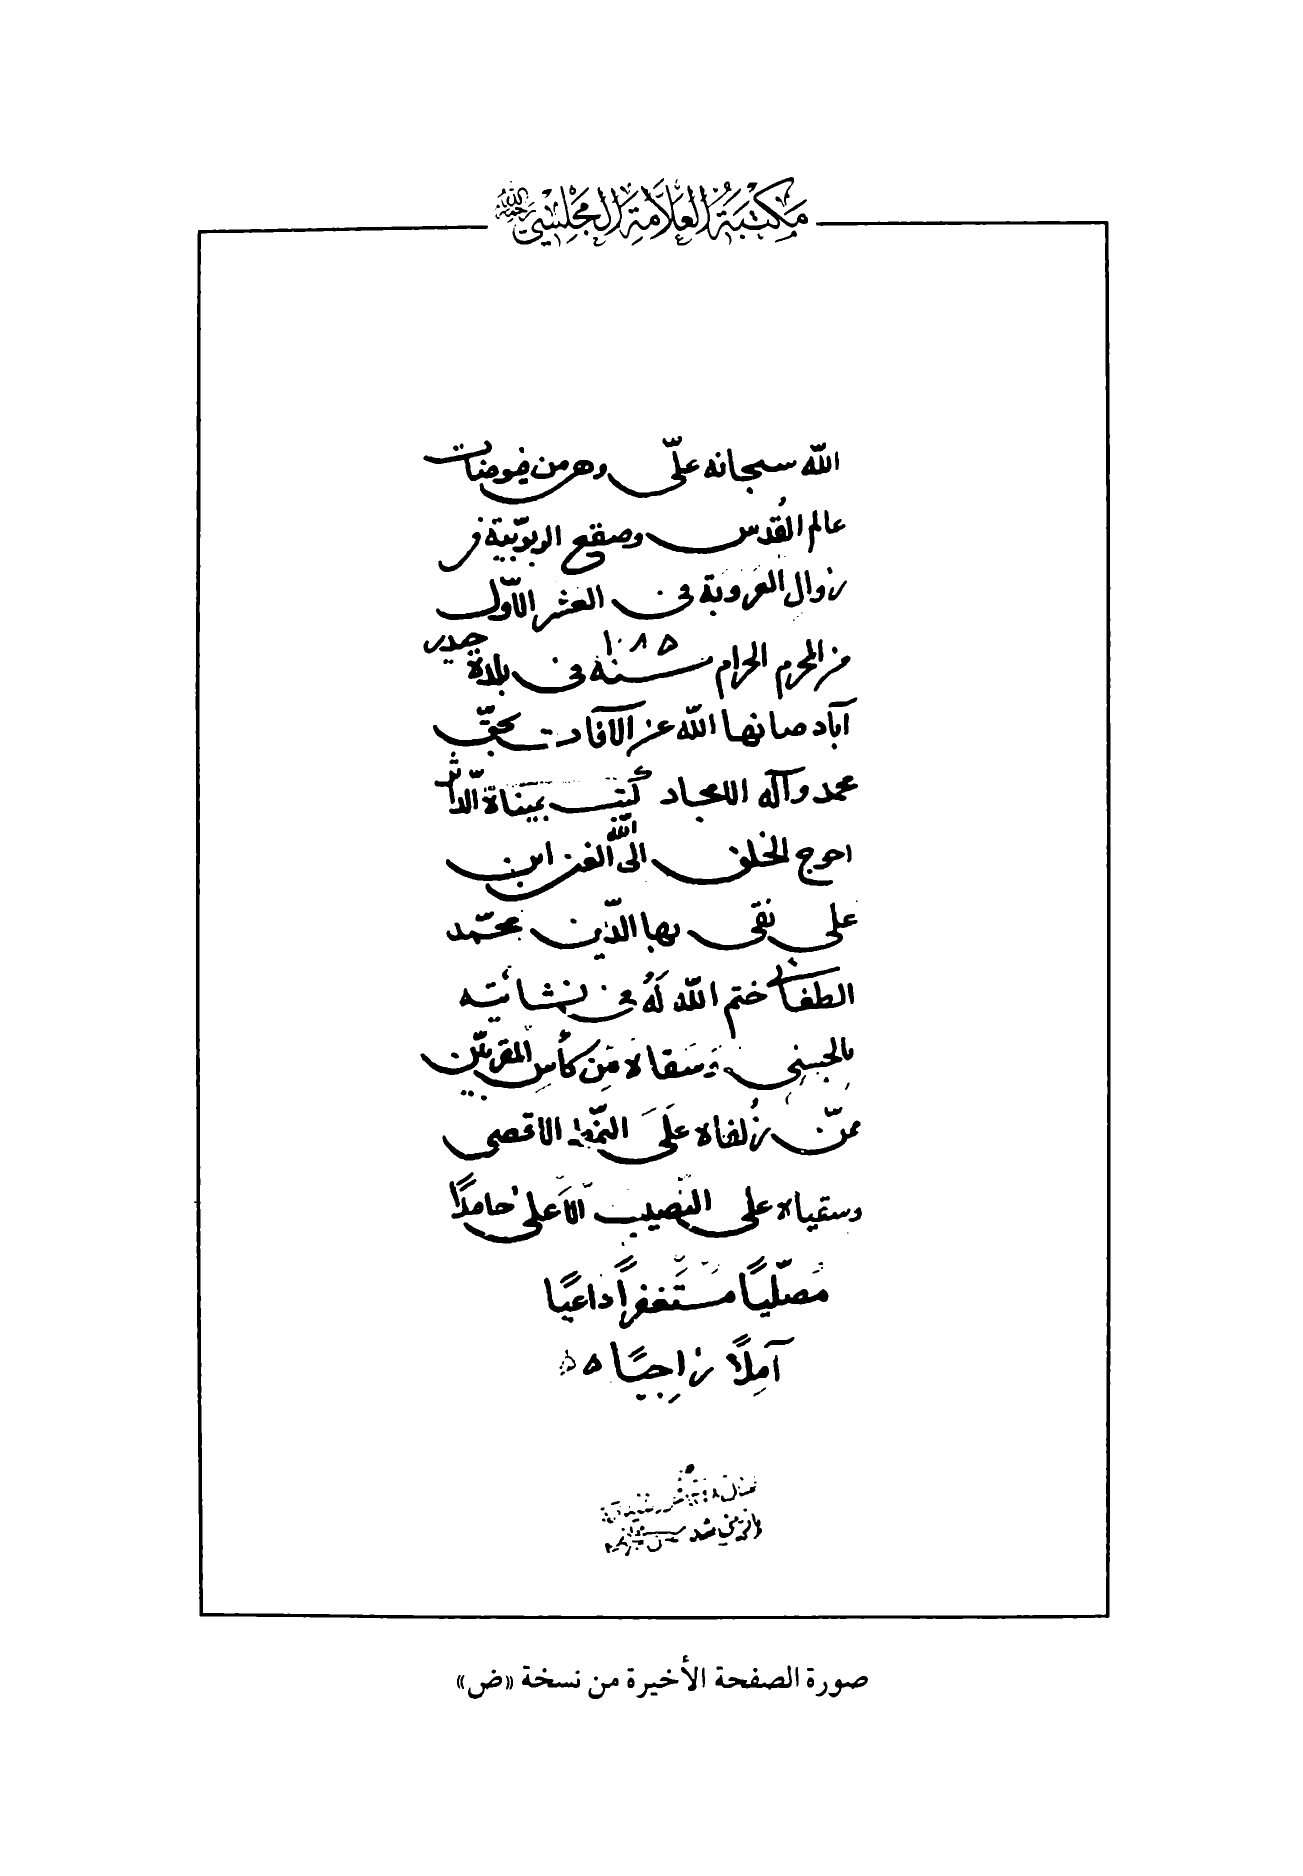 مكتبة العلامة المجلسي رحمه الله
الله سبحانه علّي وهي من فيوضات
عالم القُدس وصقع الربوبّية في
زوال العروبة في العشر الاوّل
من المحرم الحرام سنه ١٠٨٥ في بلدة حيدر
آباد صانها الله عن الآفات بحقّ
محمد وآله الامجاد كتب بيمناة الدّاثر
احوج الخلق الى الله الغني ابن
علي نقي بها الدّين محمّد
الطغائي ختم الله لَهُ في نشأتيه
بالحسنى وَسَقاه مِن كأسِ المقربّين
ممنّ زُلفاه عَلَى النمّط الاقصى
وسقياه على النّصيب الأَعلى حامدًا
مُصلّيًا مستَغفرًا داعيًا
آمِلًا راجِيًا ٥
بازبينى شد
صورة الصفحة الأخيرة من نسخة «ض»